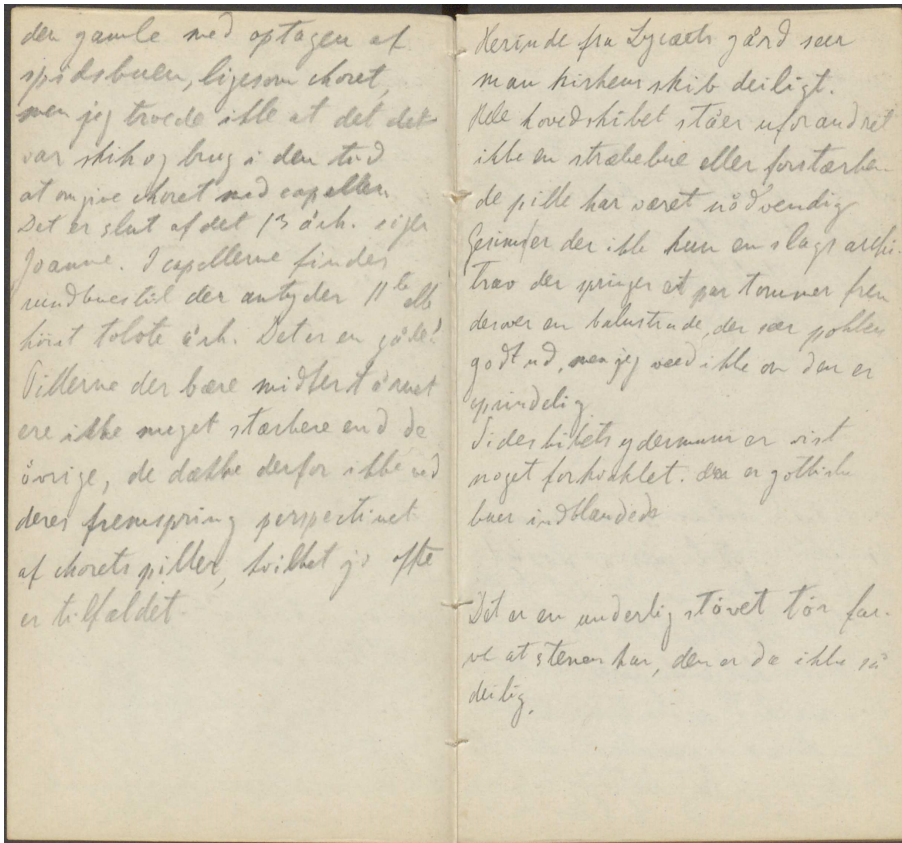 den gamle med optagen af
spidsbuen, ligesom choret,
men jeg troede ikke at det det
var skik og brug i den tid
at omgive choret med capeller.
Det er slut af det 13 årh. siger
Joanne. I capellerne findes
rundbuestil der antyder 11te ell
høist tolvte årh. Det er en gåde!
Pillerne der bære midtertårnet
ere ikke meget stærkere end de
øvrige, de dække derfor ikke ved
deres fremspring perspectivet
af chorets piller, hvilket jo ofte
er tilfældet.
Herinde fra Lycæets gård seer
man kirkens skib deiligt.
Hele hovedskibet ståer uforandret
ikke en stræbebue eller forstærken-
de pille har været nödvendig
Gesims er der ikke kun en slags archi-
trav der springer et par tommer frem
derover en balustrade, der seer pokkers
godt ud, men jeg veed ikke om den er
oprindelig
Sideskibets ydermuur er vist
noget forkvaklet. der er gothiske
buer indblandede
Det er en underlig støvet tør far-
ve at stenen har, den er da ikke så
deilig.